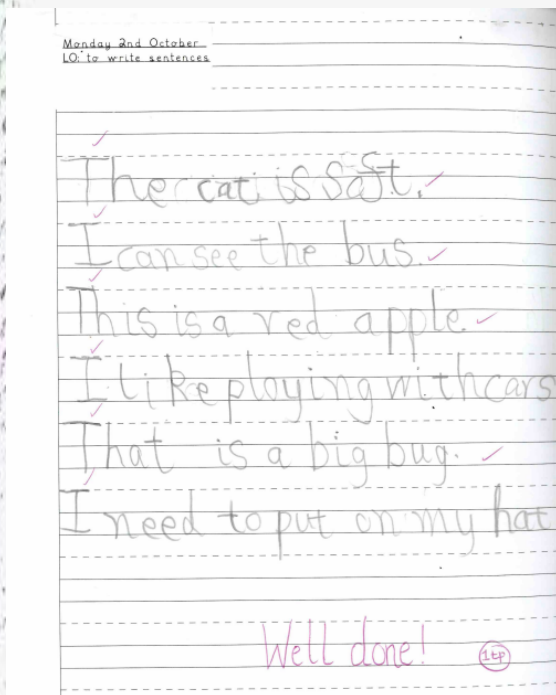 Monday 2nd October
LO: to write sentences
The cat is soft.
I can see the bus.
This is a red apple.
I like playing with cars
That is a big bug.
I need to put on my hat
Well done!
1tp